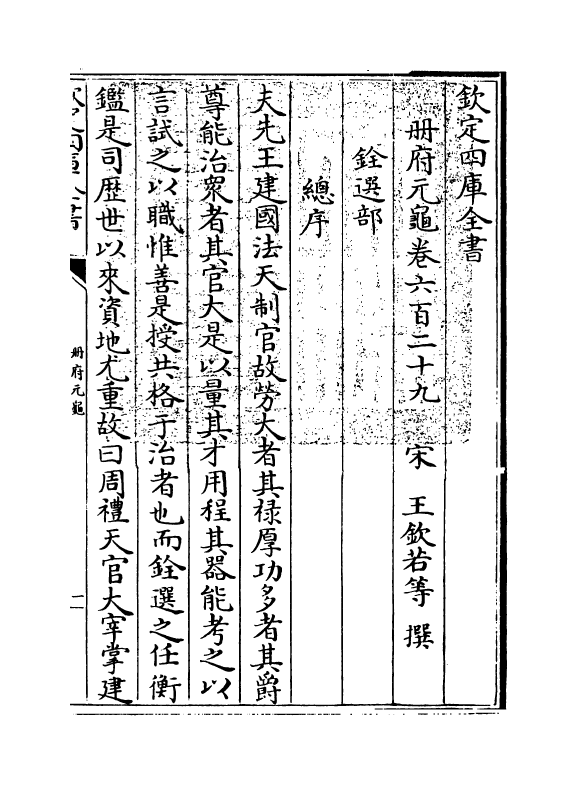 欽定四庫全書
冊府元龜卷六百二十九　宋　王欽若等　撰
銓選部
總序
夫先王建國法天制官故勞大者其祿厚功多者其爵
尊能治衆者其官大是以量其才用程其器能考之以
言試之以職惟善是授共格于治者也而銓選之任衡
鑑是司歷世以來資地尤重故曰周禮天官大宰掌建
欽定四庫全書
冊府元龜
二